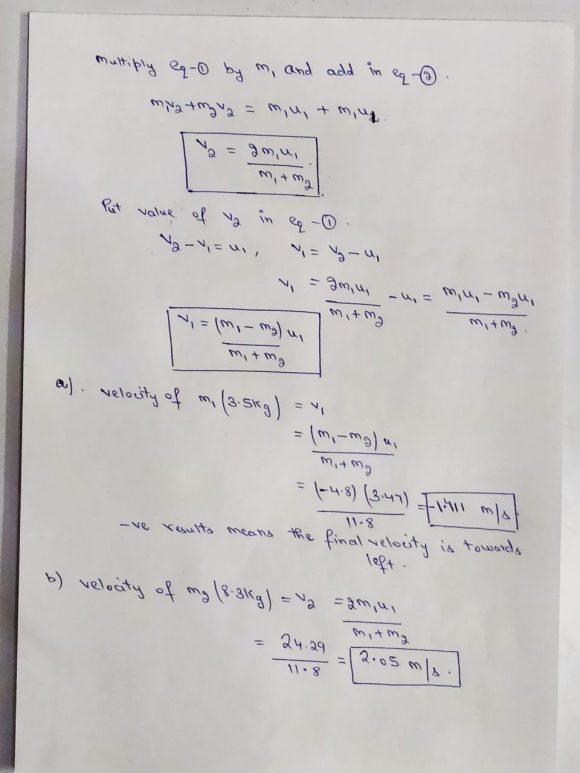 multiply eq-① by m₁ and add in eq-②.
m₁v₂+m₂v₂ = m₁u₁ + m₁u₁
v₂ = 2m₁u₁/(m₁+m₂)
Put value of v₂ in eq-①.
v₂-v₁=u₁, v₁= v₂-u₁
v₁ = 2m₁u₁/(m₁+m₂) - u₁ = (m₁u₁-m₂u₁)/(m₁+m₂).
v₁ = (m₁-m₂)u₁/(m₁+m₂)
a). velocity of m₁(3.5kg) = v₁
= (m₁-m₂)u₁/(m₁+m₂)
= (-4.8)(3.47)/11.8 = -1.411 m/s.
-ve results means the final velocity is towards
left.
b) velocity of m₂(8.3kg) = v₂ = 2m₁u₁/(m₁+m₂)
= 24.29/11.8 = 2.05 m/s.